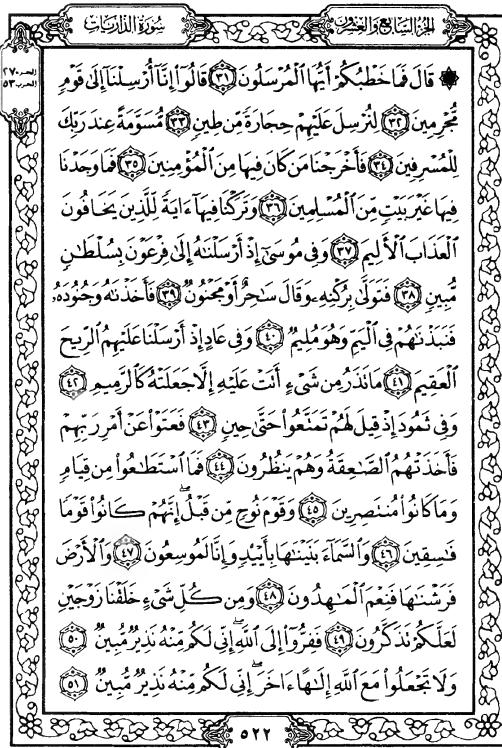 الجزء السابع والعشرون
سورة الذاريات
۞ قَالَ فَمَا خَطْبُكُمْ أَيُّهَا ٱلْمُرْسَلُونَ ٣١ قَالُوٓا۟ إِنَّآ أُرْسِلْنَآ إِلَىٰ قَوْمٍ
مُّجْرِمِينَ ٣٢ لِنُرْسِلَ عَلَيْهِمْ حِجَارَةً مِّن طِينٍ ٣٣ مُّسَوَّمَةً عِندَ رَبِّكَ
لِلْمُسْرِفِينَ ٣٤ فَأَخْرَجْنَا مَن كَانَ فِيهَا مِنَ ٱلْمُؤْمِنِينَ ٣٥ فَمَا وَجَدْنَا
فِيهَا غَيْرَ بَيْتٍ مِّنَ ٱلْمُسْلِمِينَ ٣٦ وَتَرَكْنَا فِيهَآ ءَايَةً لِّلَّذِينَ يَخَافُونَ
ٱلْعَذَابَ ٱلْأَلِيمَ ٣٧ وَفِى مُوسَىٰٓ إِذْ أَرْسَلْنَٰهُ إِلَىٰ فِرْعَوْنَ بِسُلْطَٰنٍ
مُّبِينٍ ٣٨ فَتَوَلَّىٰ بِرُكْنِهِۦ وَقَالَ سَٰحِرٌ أَوْ مَجْنُونٌ ٣٩ فَأَخَذْنَٰهُ وَجُنُودَهُۥ
فَنَبَذْنَٰهُمْ فِى ٱلْيَمِّ وَهُوَ مُلِيمٌ ٤٠ وَفِى عَادٍ إِذْ أَرْسَلْنَا عَلَيْهِمُ ٱلرِّيحَ
ٱلْعَقِيمَ ٤١ مَا تَذَرُ مِن شَىْءٍ أَتَتْ عَلَيْهِ إِلَّا جَعَلَتْهُ كَٱلرَّمِيمِ ٤٢
وَفِى ثَمُودَ إِذْ قِيلَ لَهُمْ تَمَتَّعُوا۟ حَتَّىٰ حِينٍ ٤٣ فَعَتَوْا۟ عَنْ أَمْرِ رَبِّهِمْ
فَأَخَذَتْهُمُ ٱلصَّٰعِقَةُ وَهُمْ يَنظُرُونَ ٤٤ فَمَا ٱسْتَطَٰعُوا۟ مِن قِيَامٍ
وَمَا كَانُوا۟ مُنتَصِرِينَ ٤٥ وَقَوْمَ نُوحٍ مِّن قَبْلُ ۖ إِنَّهُمْ كَانُوا۟ قَوْمًا
فَٰسِقِينَ ٤٦ وَٱلسَّمَآءَ بَنَيْنَٰهَا بِأَيْي۟دٍ وَإِنَّا لَمُوسِعُونَ ٤٧ وَٱلْأَرْضَ
فَرَشْنَٰهَا فَنِعْمَ ٱلْمَٰهِدُونَ ٤٨ وَمِن كُلِّ شَىْءٍ خَلَقْنَا زَوْجَيْنِ
لَعَلَّكُمْ تَذَكَّرُونَ ٤٩ فَفِرُّوٓا۟ إِلَى ٱللَّهِ ۖ إِنِّى لَكُم مِّنْهُ نَذِيرٌ مُّبِينٌ ٥٠
وَلَا تَجْعَلُوا۟ مَعَ ٱللَّهِ إِلَٰهًا ءَاخَرَ ۖ إِنِّى لَكُم مِّنْهُ نَذِيرٌ مُّبِينٌ ٥١
٥٢٢
الجزء ٢٧
الحزب ٥٣